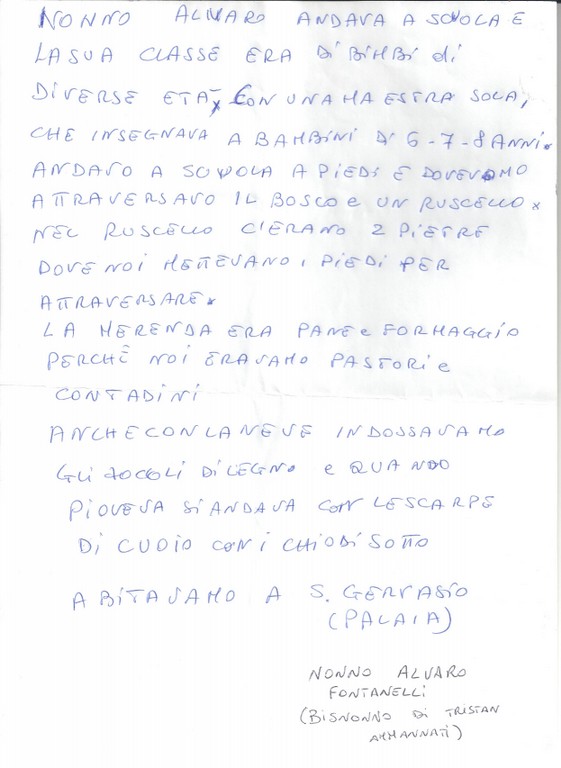 NONNO ALVARO ANDAVA A SCUOLA E
LA SUA CLASSE ERA Di BiMBi di
DIVERSE ETA, CON UNA MAESTRA SOLA,
CHE INSEGNAVA A BAMBINI Di 6-7-8 ANNI.
ANDAVO A SCUOLA A PIEDI E DOVEVAMO
ATTRAVERSAVO IL BOSCO e UN RUSCELLO.
NEL RUSCELLO C'ERANO 2 PIETRE
DOVE NOI METTEVANO i PIEDI PER
ATTRAVERSARE.
LA MERENDA ERA PANE e FORMAGGIO
PERCHÊ NOI ERAVAMO PASTORI e
CONTADINI
ANCHE CON LA NEVE INDOSSAVAMO
GLI ZOCCOLI DI LEGNO e QUANDO
PIOVEVA Si ANDAVA CON LE SCARPE
Di CUOIO CON i CHIODi SOTTO
ABITAVAMO A S. GERVASIO
(PALAIA)
NONNO ALVARO
FONTANELLI
(BISNONNO Di TRISTAN
AMMANNATI)